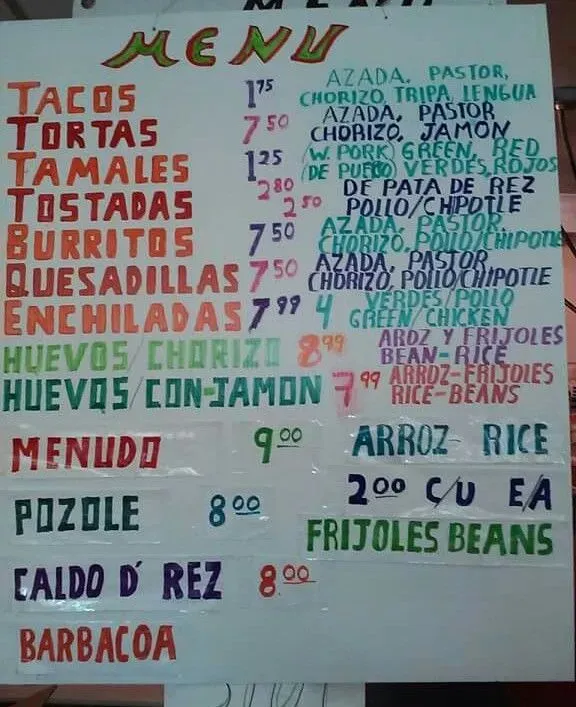 MENU
TACOS 1 75 AZADA, PASTOR,
CHORIZO, TRIPA, LENGUA
TORTAS 7 50 AZADA, PASTOR
CHORIZO, JAMON
TAMALES 1 25 (W. PORK) GREEN, RED
(DE PUERCO) VERDES, ROJOS
TOSTADAS 2 80 DE PATA DE REZ
2 50 POLLO/CHIPOTLE
BURRITOS 7 50 AZADA, PASTOR,
CHORIZO, POLLO/CHIPOTLE
QUESADILLAS 7 50 AZADA, PASTOR
CHORIZO, POLLO/CHIPOTLE
ENCHILADAS 7 99 4 VERDES/POLLO
GREEN/CHICKEN
HUEVOS/CHORIZO 8 99 AROZ Y FRIJOLES
BEAN-RICE
HUEVOS/CON-JAMON 7 99 ARROZ-FRIJOLES
RICE-BEANS
MENUDO 9 00 ARROZ- RICE
POZOLE 8 00 2 00 C/U E/A
FRIJOLES BEANS
CALDO D' REZ 8.00
BARBACOA